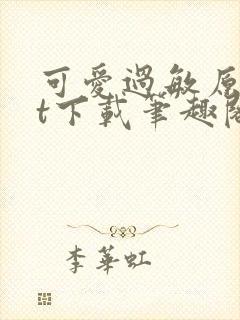 可愛過敏原
t下載筆趣閣
李華虹